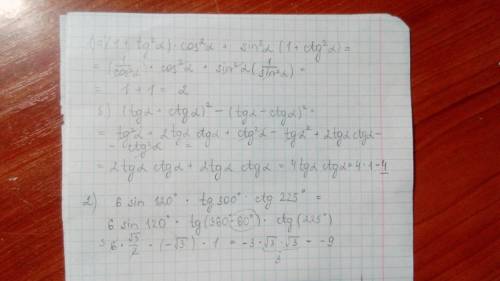 (=)(1 + tg²α) · cos²α + sin²α (1 + ctg²α) =
= (1/cos²α) · cos²α + sin²α (1/sin²α) =
= 1 + 1 = 2
б) (tgα + ctgα)² − (tgα − ctgα)² =
= tg²α + 2tgα ctgα + ctg²α − tgα² + 2tgα ctgα −
− ctg²α =
= 2tgα ctgα + 2tgα ctgα = 4tgα ctgα = 4 · 1 = 4
2) 6 sin 120° · tg 300° · ctg 225° =
6 sin 120° · tg(360° − 60°) · ctg (225°)
= 6 · √3/2 · (−√3) · 1 = −3 · √3 · √3 = −9
3